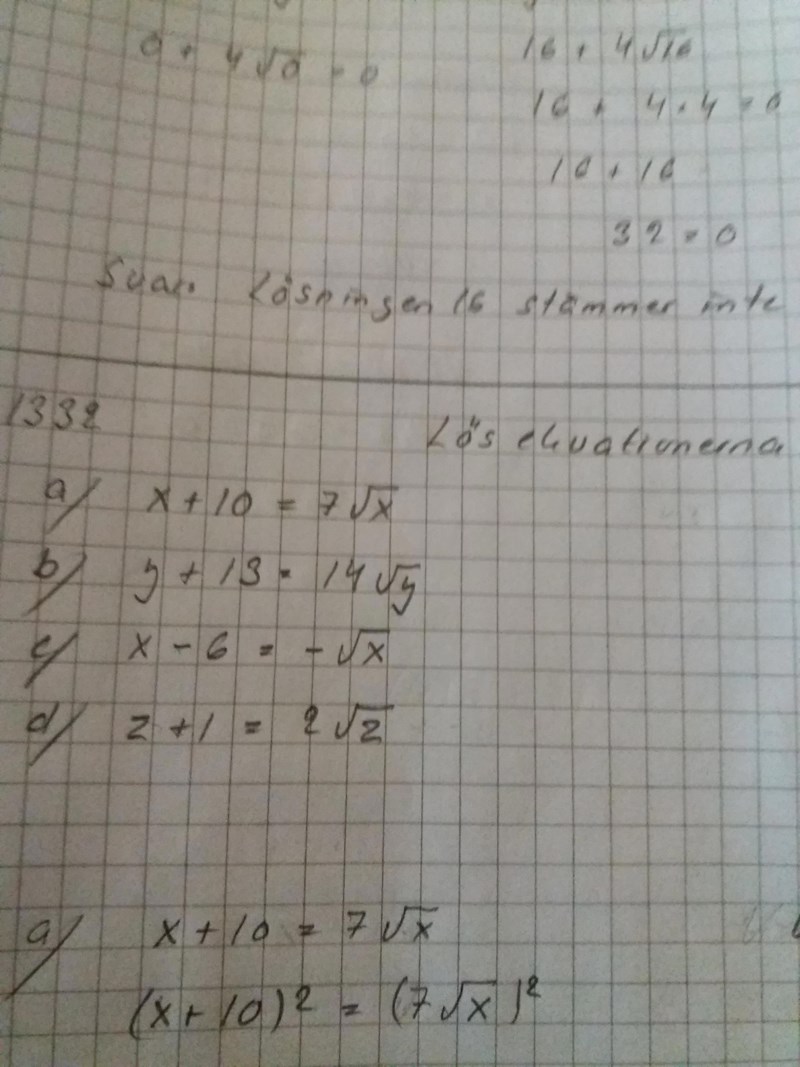 0 + 4√0 = 0
16 + 4√16
16 + 4·4 = 0
16 + 16
32 = 0
Svar. Lösningen 16 stämmer inte
1332 Lös ekvationerna
a) x + 10 = 7√x
b) y + 13 = 14√y
c) x - 6 = -√x
d) z + 1 = 2√z
a) x + 10 = 7√x
(x + 10)² = (7√x)²